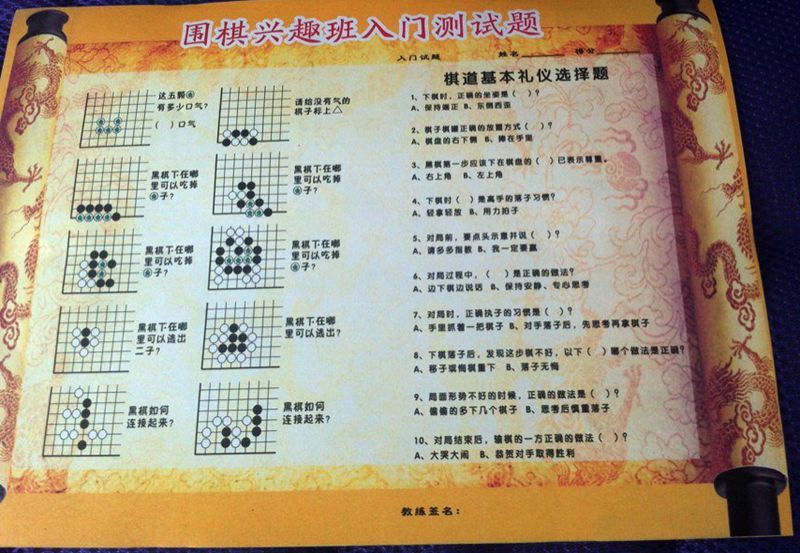 围棋兴趣班入门测试题
入门试题 姓名 得分
这五颗
有多少口气？
（ ）口气
请给没有气的
棋子标上△
黑棋下在哪
里可以吃掉
子？
黑棋下在哪
里可以吃掉
子？
黑棋下在哪
里可以吃掉
子？
黑棋下在哪
里可以吃掉
子？
黑棋下在哪
里可以逃出
二子？
黑棋下在哪
里可以逃出？
黑棋如何
连接起来？
黑棋如何
连接起来？
棋道基本礼仪选择题
1、下棋时，正确的坐姿是（ ）？
A、保持端正 B、东倒西歪
2、棋子棋罐正确的放置方式（ ）？
A、棋盘的右下侧 B、捧在手里
3、黑棋第一步应该下在棋盘的（ ）已表示尊重。
A、右上角 B、左上角
4、下棋时（ ）是高手的落子习惯？
A、轻拿轻放 B、用力拍子
5、对局前，要点头示意并说（ ）？
A、请多多指教 B、我一定要赢
6、对局过程中，（ ）是正确的做法？
A、边下棋边说话 B、保持安静、专心思考
7、对局时，正确执子的习惯是（ ）？
A、手里抓着一把棋子 B、对手落子后，先思考再拿棋子
8、下棋落子后，发现这步棋不好，以下（ ）哪个做法是正确？
A、移子或悔棋重下 B、落子无悔
9、局面形势不好的时候，正确的做法是（ ）？
A、偷偷的多下几个棋子 B、思考后慎重落子
10、对局结束后，输棋的一方正确的做法（ ）？
A、大哭大闹 B、恭贺对手取得胜利
教练签名：